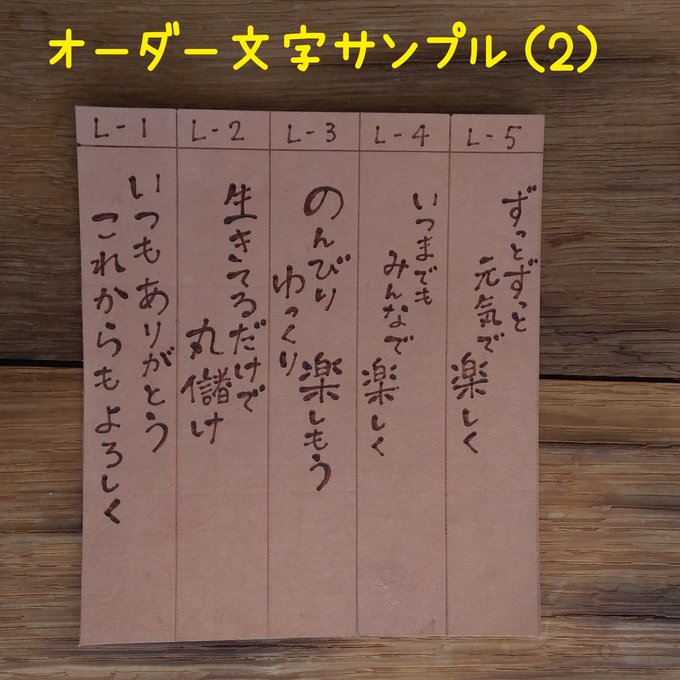 オーダー文字サンプル(2)
L-1
いつもありがとう
これからもよろしく
L-2
生きてるだけで
丸儲け
L-3
のんびり
ゆっくり
楽しもう
L-4
いつまでも
みんなで
楽しく
L-5
ずっとずっと
元気で
楽しく